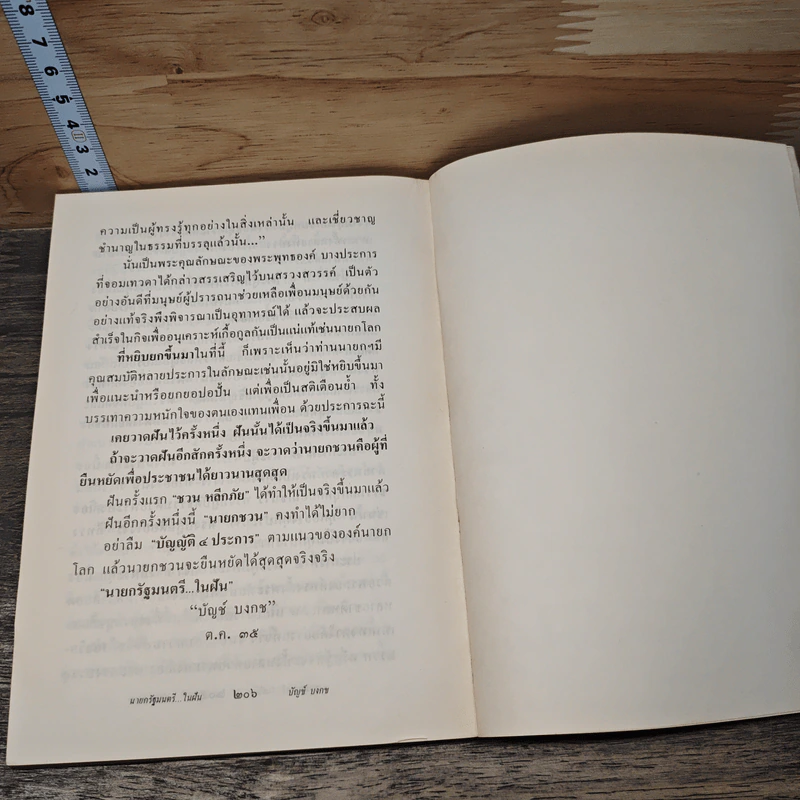 8
7
6
5
4
3
2
ความเป็นผู้ทรงรู้ทุกอย่างในสิ่งเหล่านั้น และเชี่ยวชาญ
ชำนาญในธรรมที่บรรลุแล้วนั้น...”
นั่นเป็นพระคุณลักษณะของพระพุทธองค์ บางประการ
ที่จอมเทวดาได้กล่าวสรรเสริญไว้บนสรวงสวรรค์ เป็นตัว
อย่างอันดีที่มนุษย์ผู้ปรารถนาช่วยเหลือเพื่อนมนุษย์ด้วยกัน
อย่างแท้จริงพึงพิจารณาเป็นอุทาหรณ์ได้ แล้วจะประสบผล
สำเร็จในกิจเพื่ออนุเคราะห์เกื้อกูลกันเป็นแน่แท้เช่นนายกโลก
ที่หยิบยกขึ้นมาในที่นี้ ก็เพราะเห็นว่าท่านนายกฯมี
คุณสมบัติหลายประการในลักษณะเช่นนั้นอยู่มิใช่หยิบขึ้นมา
เพื่อแนะนำหรือยกยอปอปั้น แต่เพื่อเป็นสติเตือนย้ำ ทั้ง
บรรเทาความหนักใจของตนเองแทนเพื่อน ด้วยประการฉะนี้
เคยวาดฝันไว้ครั้งหนึ่ง ฝันนั้นได้เป็นจริงขึ้นมาแล้ว
ถ้าจะวาดฝันอีกสักครั้งหนึ่ง จะวาดว่านายกชวนคือผู้ที่
ยืนหยัดเพื่อประชาชนได้ยาวนานสุดสุด
ฝันครั้งแรก “ชวน หลีกภัย” ได้ทำให้เป็นจริงขึ้นมาแล้ว
ฝันอีกครั้งหนึ่งนี้ “นายกชวน” คงทำได้ไม่ยาก
อย่าลืม “บัญญัติ ๔ ประการ” ตามแนวขององค์นายก
โลก แล้วนายกชวนจะยืนหยัดได้สุดสุดจริงจริง
“นายกรัฐมนตรี...ในฝัน”
“บัญช์ บงกช”
ต.ค. ๓๕
นายกรัฐมนตรี...ในฝัน ๒๐๖ บัญช์ บงกช